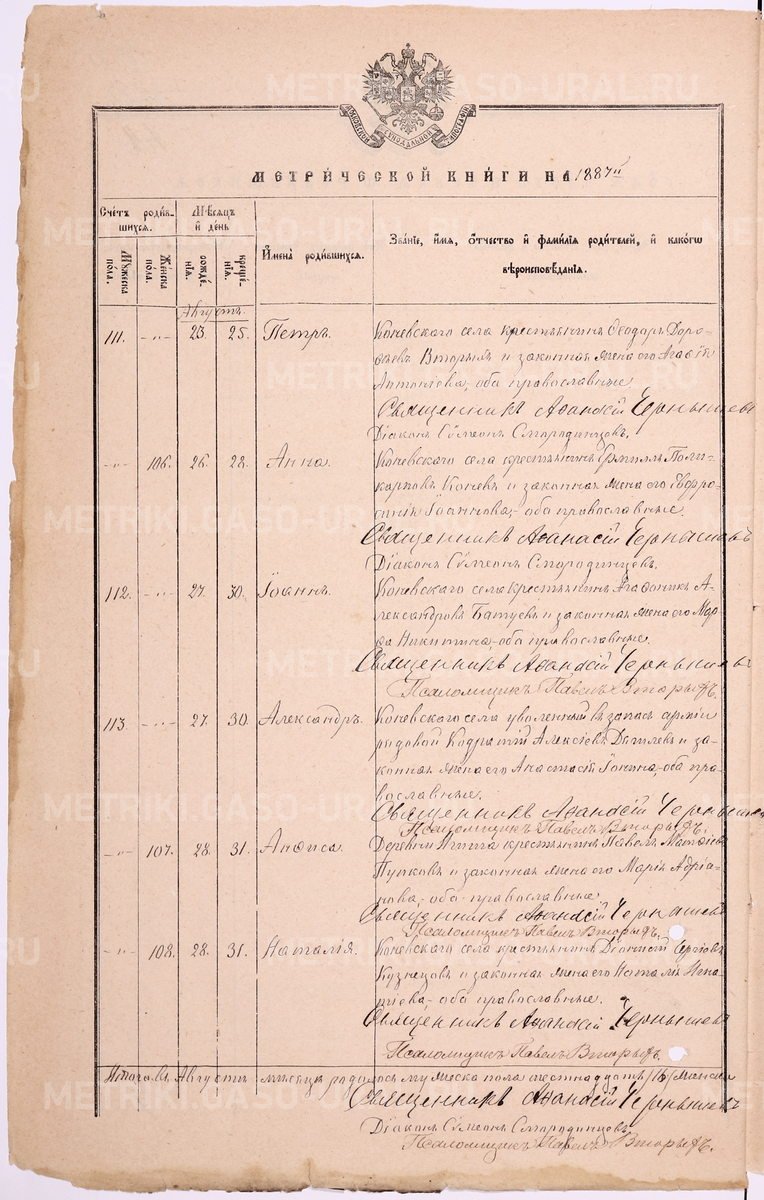 МОСКОВСКОЙ СѴНОДАЛЬНОЙ ТИПОГРАФІИ
МЕТРИ́ЧЕСКОЙ КНИ́ГИ НА 1887 г.
Сче́тъ роди́в-
шихся.
Мѣ́сяцъ
и́ де́нь
И҆мена̀ роди́вшихся.
Зва́нїе, и҆́мя, ѻ҆́тчество и҆ фами́лїя роди́телей, и҆ како́гѡ
вѣроисповѣ́данїя.
Му́жеска
по́ла.
Же́нска
по́ла.
рожде́-
нїя.
креще́-
нїя.
Августъ.
111. -"- 23. 25. Петръ. Коневскаго села крестьянинъ Ѳеодоръ Доро-
ѳеевъ Вторыхъ и законная жена его Агаѳія
Антоніева, оба православные
Священникъ Аѳанасій Чернышевъ
Діаконъ Сѵмеонъ Смородинцевъ.
-"- 106. 26. 28. Анна. Коневскаго села крестьянинъ Ермилъ Поли-
карповъ Коневъ и законная жена его Евфро-
синія Іоаннова, оба православные.
Священникъ Аѳанасій Чернышевъ
Діаконъ Сѵмеонъ Смородинцевъ.
112. -"- 27. 30. Іоаннъ. Коневскаго села крестьянинъ Агаѳоникъ А-
лександровъ Батуевъ и законная жена его Мар-
ѳа Никитина, оба православные.
Священникъ Аѳанасій Чернышевъ
Псаломщикъ Павелъ Вторыхъ.
113. -"- 27. 30. Александръ. Коневскаго села уволенный въ запасъ арміи
рядовой Кодратій Алексіевъ и за-
конная жена его Анастасія Іонина, оба пра-
вославные.
Священникъ Аѳанасій Чернышевъ
Псаломщикъ Павелъ Вторыхъ.
-"- 107. 28. 31. Анѳиса. Деревни крестьянинъ Павелъ Матѳіевъ
Пупковъ и законная жена его Марія Адріа-
нова, оба православные
Священникъ Аѳанасій Чернышевъ
Псаломщикъ Павелъ Вторыхъ.
-"- 108. 28. 31. Наталія. Коневскаго села крестьянинъ Діонисій Сергіевъ
Кузнецовъ и законная жена его Наталія Игна-
тіева, оба православные.
Священникъ Аѳанасій Чернышевъ
Псаломщикъ Павелъ Вторыхъ.
Итого въ Августѣ мѣсяцѣ родилось мужеска пола шестнадцать /16/ женска
Священникъ Аѳанасій Чернышевъ
Діаконъ Сѵмеонъ Смородинцевъ
Псаломщикъ Павелъ Вторыхъ.
METRIKI.GASO-URAL.RU